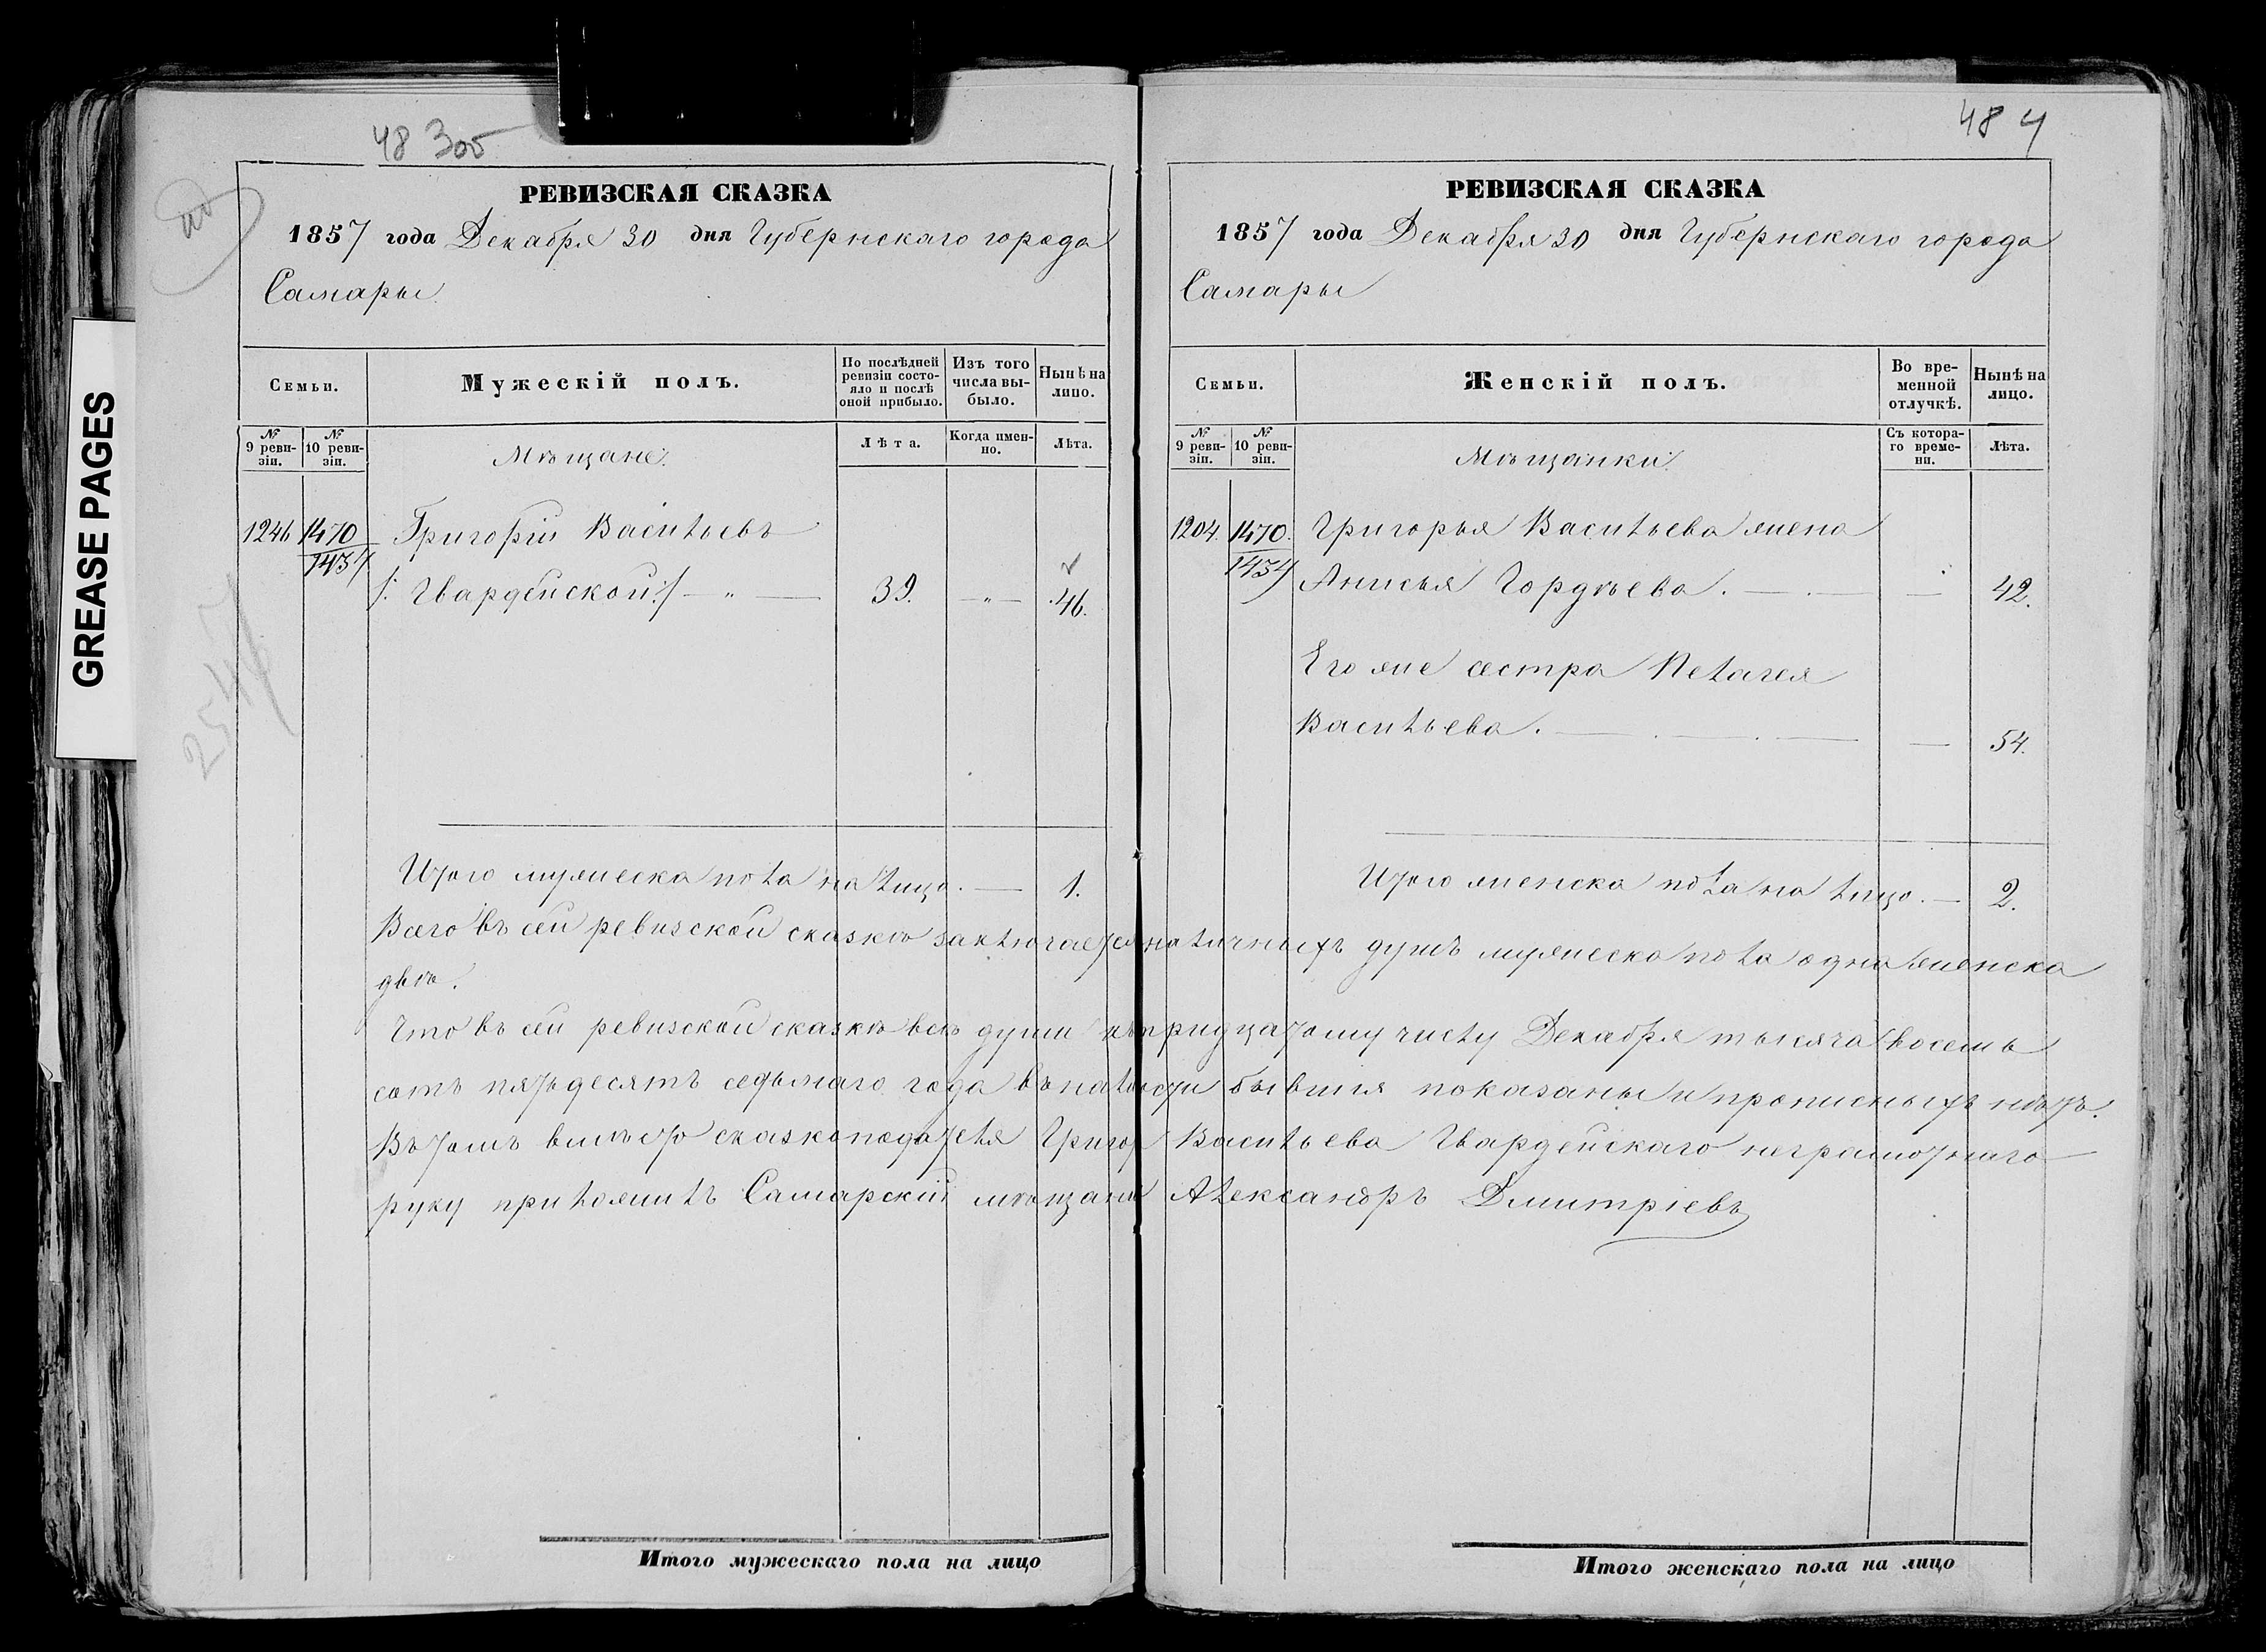 48 300
РЕВИЗСКАЯ СКАЗКА
1857 года Декабря 30 дня Губернскаго города
Самары
Семьи.
Мужескій полъ.
По послѣдней ревизіи состо-
яло и послѣ
оной прибыло.
Изъ того
числа вы-
было.
Нынѣ на
лицо.
№
9 реви-
зіи.
№
10 реви-
зіи.
Мѣщане.
Лѣта.
Когда имен-
но.
Лѣта.
1246 1470 Григорій Васильевъ
/: Гвардейской :/ — „ — 39. — „ — 46.
Итого мужеска пола на лицо. — 1.
GREASE PAGES
48 4
РЕВИЗСКАЯ СКАЗКА
1857 года Декабря 30 дня Губернскаго города
Самары
Семьи.
Женскій полъ.
Во вре-
менной
отлучкѣ.
Нынѣ на
лицо.
№
9 реви-
зіи.
№
10 реви-
зіи.
Мѣщанки.
Съ котора-
го време-
ни.
Лѣта.
1204. 1470. Григорья Васильева жена
Анисья Гордѣева. — . — — 42.
Его же сестра Пелагея
Васильева. — . — . — — 54.
Итого женска пола на лицо. — 2.
Всего въ сей ревизской сказкѣ заключается наличныхъ душъ мужеска пола одна женска
двѣ.
Что въ сей ревизской сказкѣ всѣ души къ тридцатому числу Декабря тысяча восемь
сотъ пятьдесятъ седьмаго года въ налости бывшія показаны и прописныхъ нѣтъ.
Въ томъ вмѣсто сказкоподателя Григор Васильева Гвардейскаго неграмотнаго
руку приложилъ Самарскій мѣщанин Александръ Дмитріевъ
Итого мужескаго пола на лицо
Итого женскаго пола на лицо